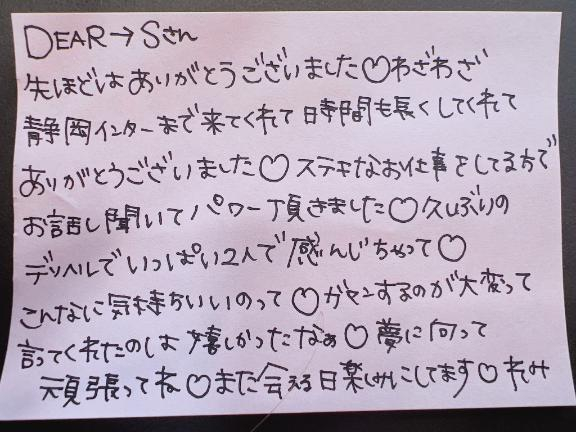 DEAR→Sさん
先ほどはありがとうございました♡わざわざ
静岡インターまで来てくれて時間も長くしてくれて
ありがとうございました♡ステキなお仕事をしてる方で
お話し聞いてパワー頂きました♡久しぶりの
デリヘルでいっぱい2人で感んじちゃって♡
こんなに気持ちいいのって♡ガマンするのが大変って
言ってくれたのは嬉しかったなぁ♡夢に向って
頑張ってね♡また会える日楽しみにしてます♡れみ